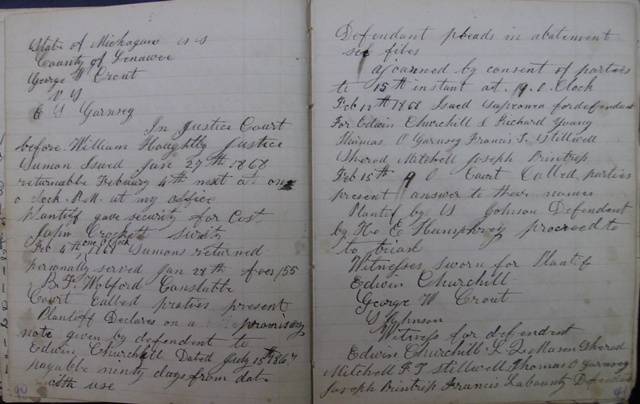 State of Michagan SS
County of Lenawee
George W Crout
VS
E S Garnsey
In Justice Court
before William Houghtly Justice
Sumon Issued Jane 27th 1868
returnable Febuary 4th next at one
o clock P.M. at my office
plantiff gave security for Cost
John Crockett surity
Feb 4th 1868 one O Clock Sumons returned
personally served Jan 28th fees 1 55
B F Wolford Constable
Court Called parties present
Plantiff Declares on a promisory
note given by defendent to
Edwin Churchill Dated July 15th 1867
payable ninty days from date
with use
Defendant pleads in abatement
see files
ajoarned by consent of parties
to 15th instant at 9 O Clock
Feb 12th 1868 Issued supoenea for defendant
For Edwin Churchill L Richard Young
Thomas O Garnsey Francis T Stillwell
Shered Mitchell Joseph Brintrip
Feb 15th 9 O Court Called parties
present answer to their names
Plantif by W Johnson Defendant
by Hve E Humphrey proceed to
to trial
Witnesses sworn for Plantif
Edwin Churchill
George W Crout
S Johnson
Witness for defendent
Edwin Churchill L Mason Shered
Mitchell F T Stillwell Thomas O Garnsey
Joseph Brintrip Francis Labounty Defendant